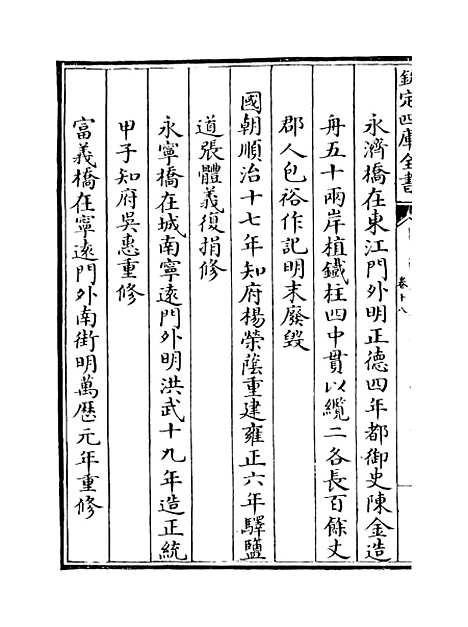 欽定四庫全書
卷十八
永濟橋在東江門外明正德四年都御史陳金造
舟五十兩岸植鐵柱四中貫以纜二各長百餘丈
郡人包裕作記明末廢毀
國朝順治十七年知府楊榮蔭重建雍正六年驛鹽
道張體義復捐修
永寧橋在城南寧遠門外明洪武十九年造正統
甲子知府吳惠重修
富義橋在寧遠門外南街明萬歷元年重修